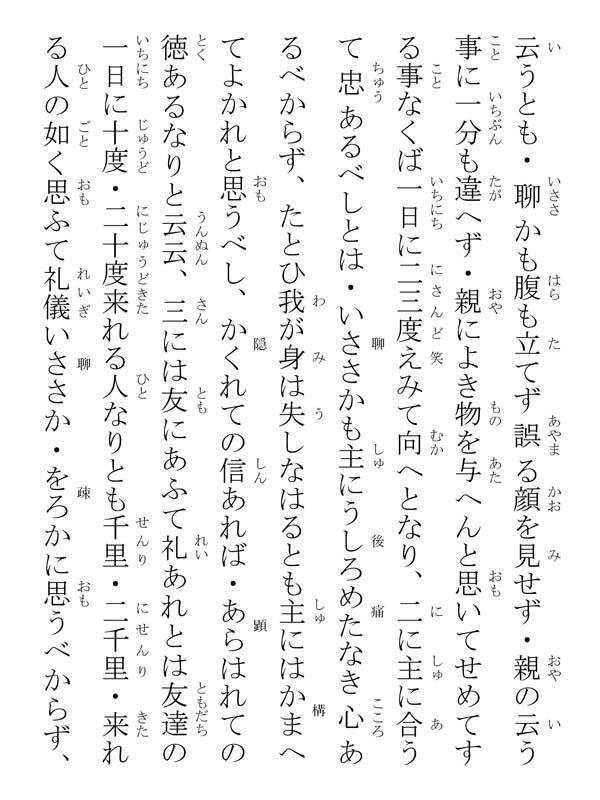 云うとも・聊かも腹も立てず誤る顔を見せず・親の云う
事に一分も違へず・親によき物を与へんと思いてせめてす
る事なくば一日に二三度えみて向へとなり、二に主に合う
て忠あるべしとは・いささかも主にうしろめたなき心あ
るべからず、たとひ我が身は失しなはるとも主にはかまへ
てよかれと思うべし、かくれての信あれば・あらはれての
徳あるなりと云云、三には友にあふて礼あれとは友達の
一日に十度・二十度来れる人なりとも千里・二千里・来れ
る人の如く思ふて礼儀いささか・をろかに思うべからず、